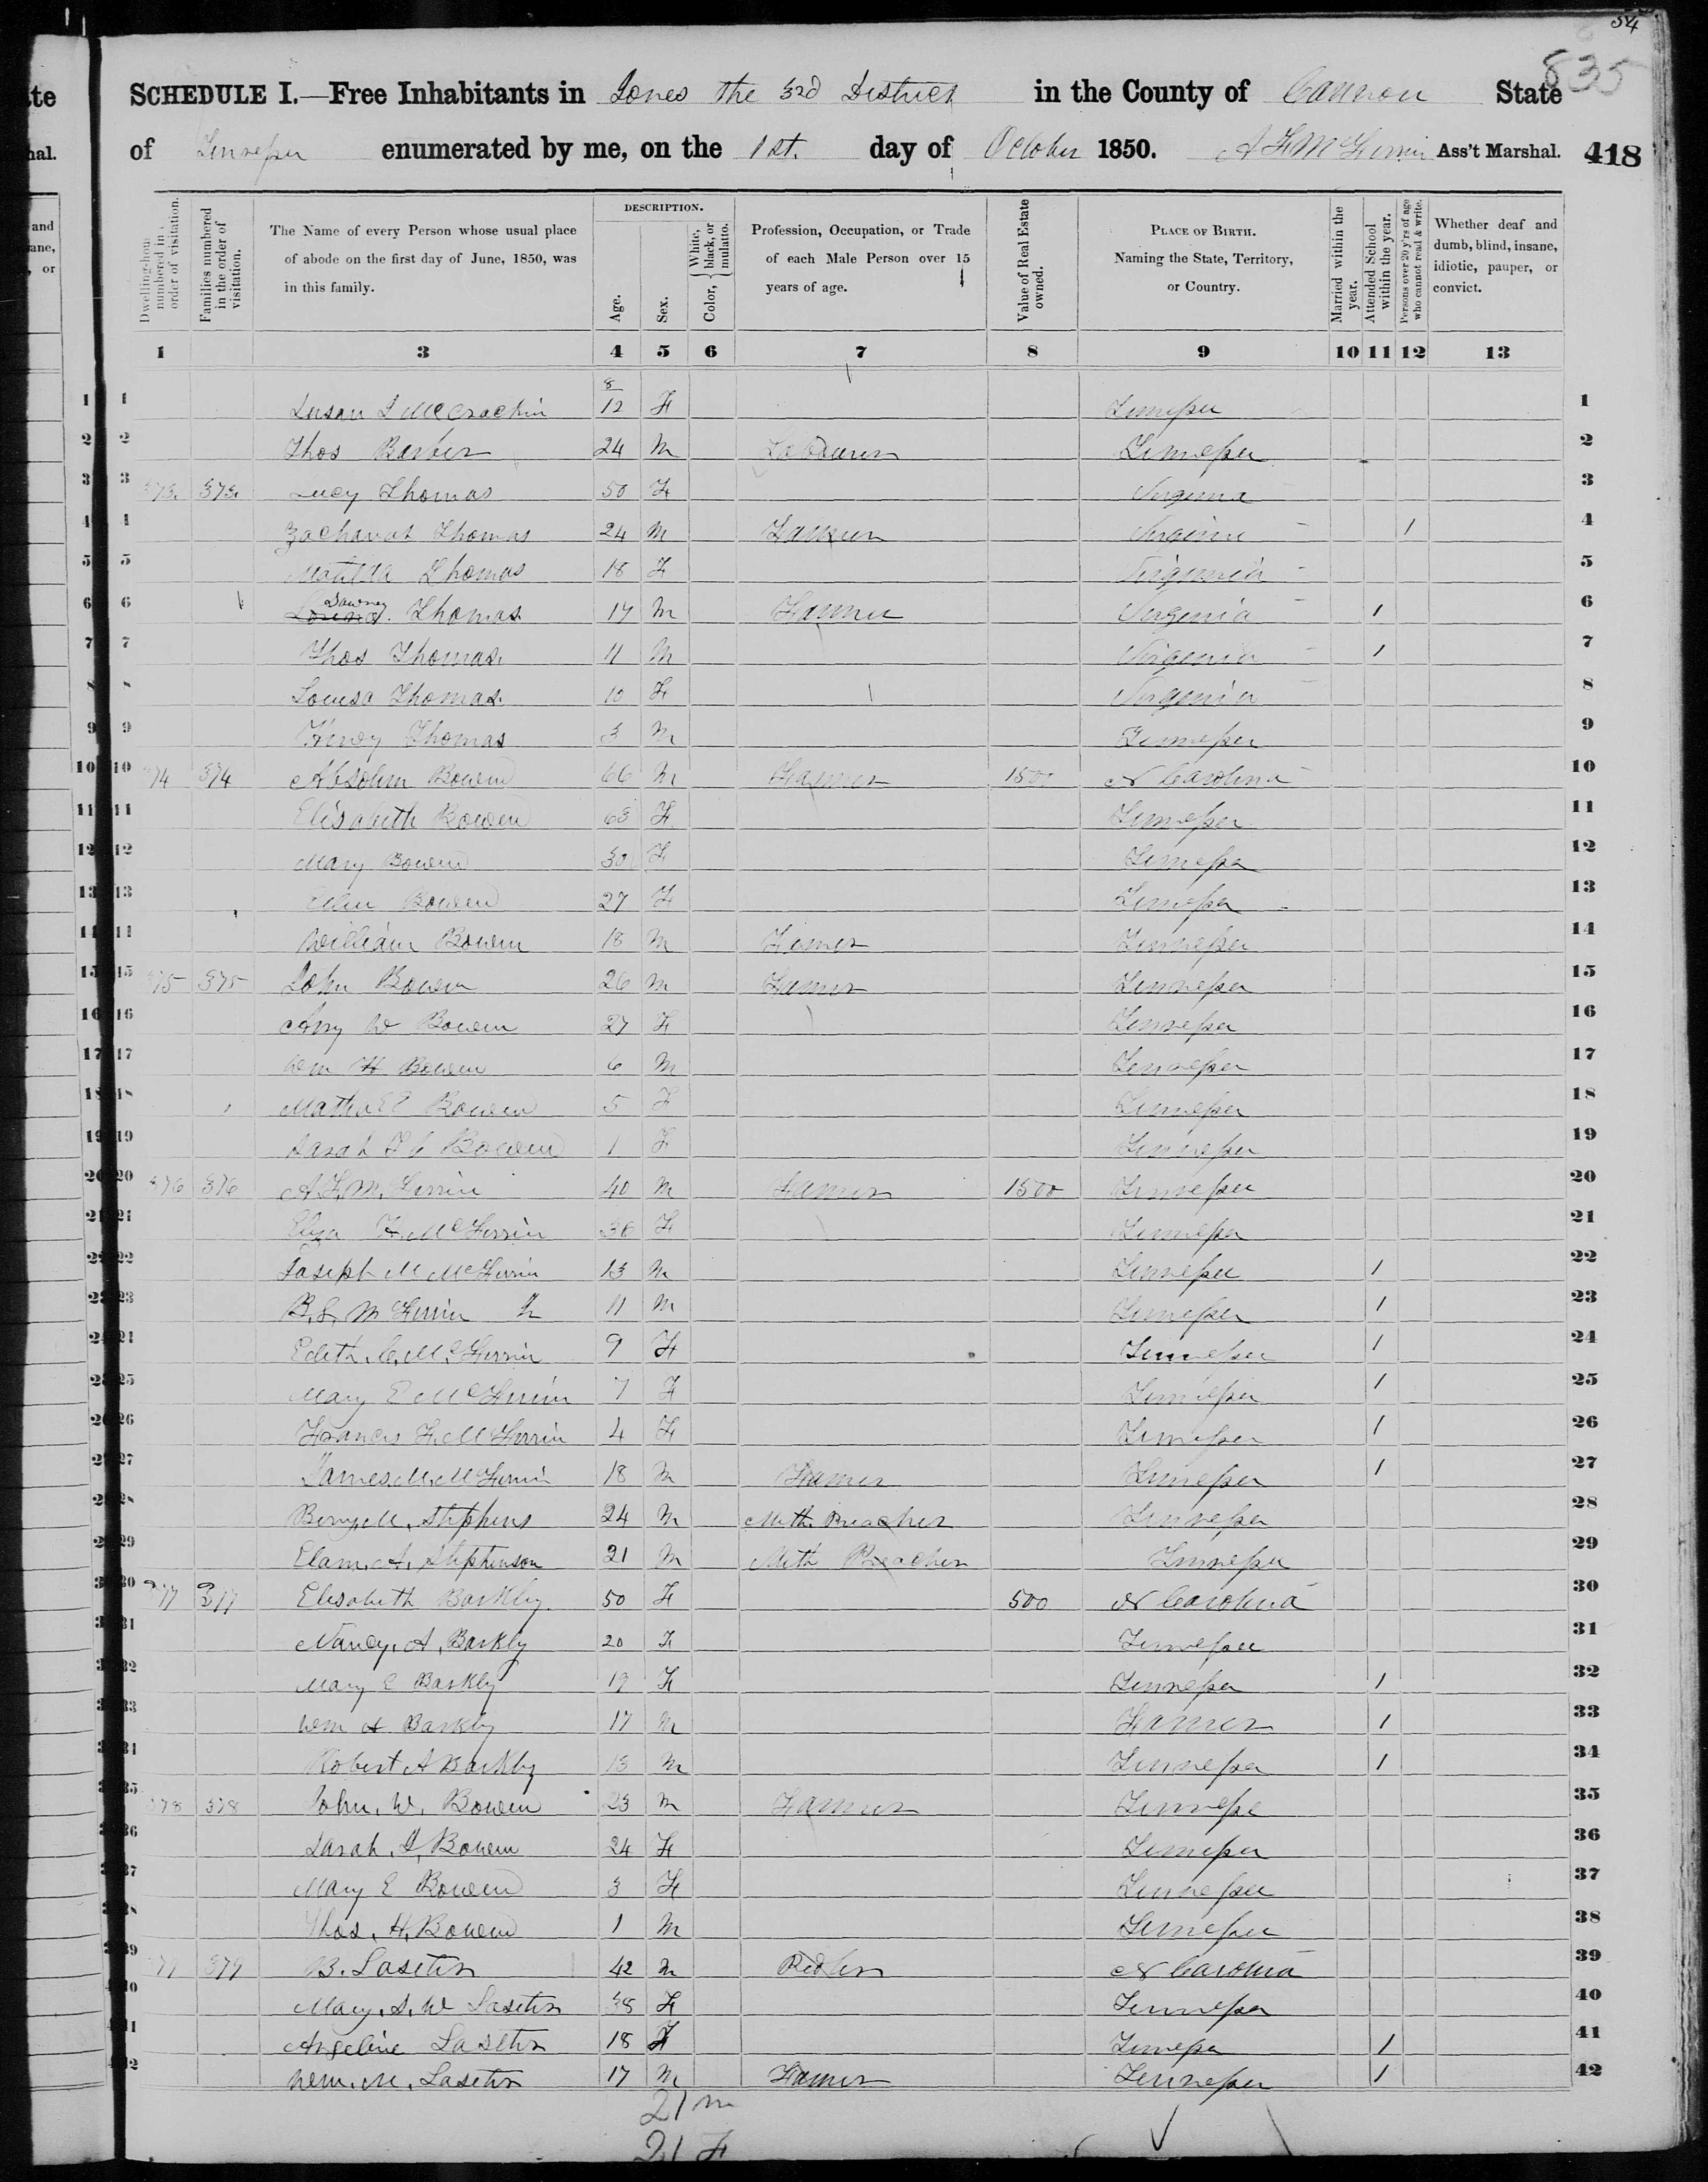 54
835
SCHEDULE I.—Free Inhabitants in Jones the 3rd District in the County of Cannon State
of Tennessee enumerated by me, on the 1st. day of October 1850. A F McFerrin Ass't Marshal. 418
Dwelling-houses numbered in order of visitation.
Families numbered in the order of visitation.
The Name of every Person whose usual place of abode on the first day of June, 1850, was in this family.
DESCRIPTION.
Age.
Sex.
Color, { White, black, or mulatto.
Profession, Occupation, or Trade of each Male Person over 15 years of age.
Value of Real Estate owned.
PLACE OF BIRTH. Naming the State, Territory, or Country.
Married within the year.
Attended School within the year.
Persons over 20 y'rs of age who cannot read & write.
Whether deaf and dumb, blind, insane, idiotic, pauper, or convict.
1 3 4 5 6 7 8 9 10 11 12 13
1 Susan J McCrackin 8/12 F Tennessee 1
2 Thos Barber 24 M Labourer Tennessee 2
3 373 373 Lucy Thomas 50 F Virginia 3
4 Zachariah Thomas 24 M Farmer Virginia 1 4
5 Matilda Thomas 18 F Virginia 5
6 Thomas 17 M Farmer Virginia 1 6
7 Thos Thomas 11 M Virginia 1 7
8 Louisa Thomas 10 F Virginia 8
9 Henry Thomas 3 M Tennessee 9
10 374 374 Absolum Bowen 66 M Farmer 1500 N Carolina 10
11 Elisabeth Bowen 63 F Tennessee 11
12 Mary Bowen 30 F Tennessee 12
13 Bowen 27 F Tennessee 13
14 William Bowen 18 M Farmer Tennessee 14
15 375 375 John Bowen 26 M Farmer Tennessee 15
16 Amy W Bowen 27 F Tennessee 16
17 Wm H Bowen 6 M Tennessee 17
18 Martha E Bowen 5 F Tennessee 18
19 Sarah F C Bowen 1 F Tennessee 19
20 376 376 A F McFerrin 40 M Farmer 1500 Tennessee 20
21 Eliza F. McFerrin 36 F Tennessee 21
22 Joseph M McFerrin 13 M Tennessee 1 22
23 B. L. McFerrin Jr 11 M Tennessee 1 23
24 Edith. C. McFerrin 9 F Tennessee 1 24
25 Mary E McFerrin 7 F Tennessee 1 25
26 Francis F. McFerrin 4 F Tennessee 1 26
27 James. M. McFerrin 18 M Farmer Tennessee 1 27
28 Berry M. Stephens 24 M Meth Preacher Tennessee 28
29 Elam. A. Stephenson 21 M Meth Preacher Tennessee 29
30 377 377 Elisabeth Barkly 50 F 500 N Carolina 30
31 Nancy. A. Barkly 20 F Tennessee 31
32 Mary E Barkly 19 F Tennessee 1 32
33 Wm A Barkly 17 M Farmer 1 33
34 Robert A Barkly 13 M Tennessee 1 34
35 378 378 John. W. Bowen 23 M Farmer Tennessee 35
36 Sarah. J. Bowen 24 F Tennessee 36
37 Mary E Bowen 3 F Tennessee 37
38 Thos. H. Bowen 1 M Tennessee 38
39 379 379 B. Laseter 42 M N Carolina 39
40 Mary. S. W Laseter 38 F Tennessee 40
41 Angeline Laseter 18 F Tennessee 1 41
42 Wm. M. Laseter 17 M Farmer Tennessee 1 42
21 m
21 F